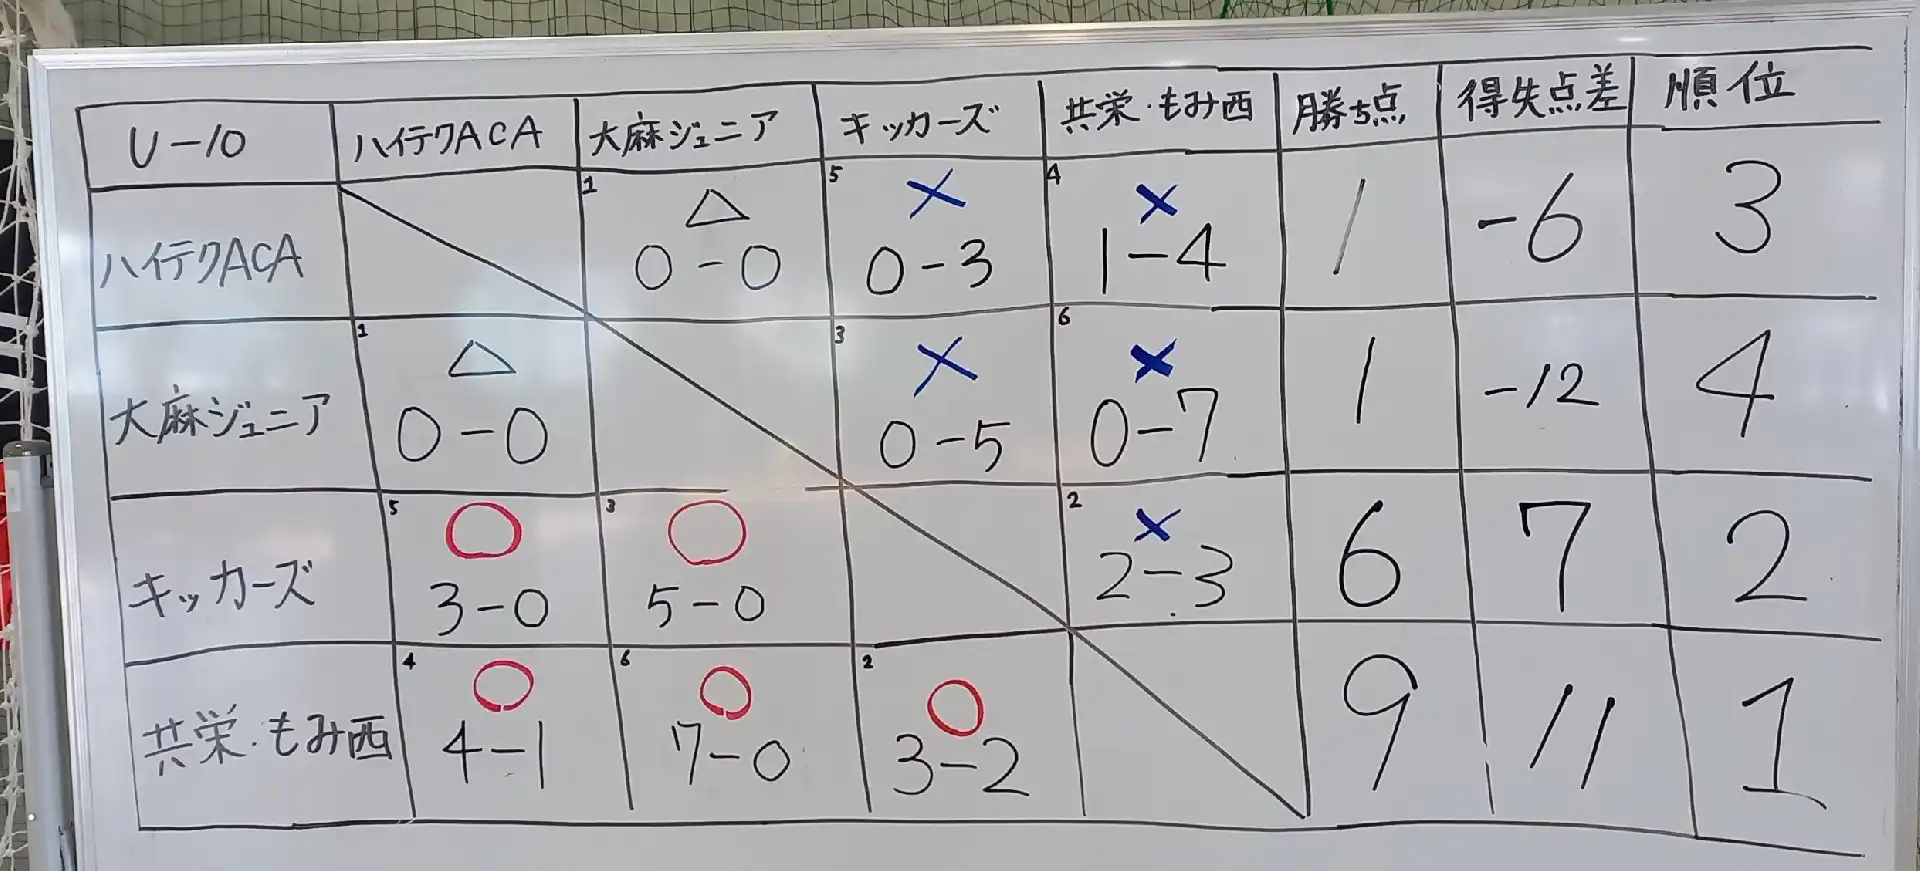 U-10 ハイテクACA 大麻ジュニア キッカーズ 共栄・もみ西 勝ち点 得失点差 順位
1 △ 5 × 4 ×
ハイテクACA 0-0 0-3 1-4 1 -6 3
1 △ 3 × 6 ×
大麻ジュニア 0-0 0-5 0-7 1 -12 4
5 ○ 3 ○ 2 ×
キッカーズ 3-0 5-0 2-3 6 7 2
4 ○ 6 ○ 2 ○
共栄・もみ西 4-1 7-0 3-2 9 11 1